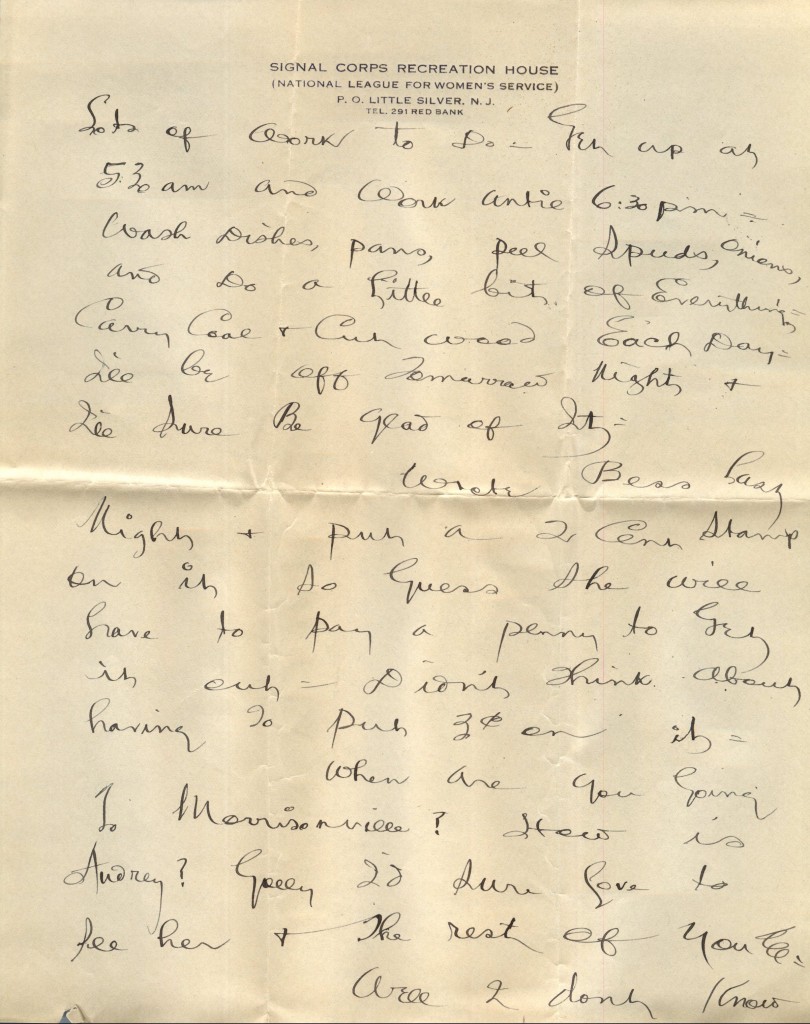 SIGNAL CORPS RECREATION HOUSE
(NATIONAL LEAGUE FOR WOMEN'S SERVICE)
P. O. LITTLE SILVER, N. J.
TEL. 291 RED BANK
Lots of Work to Do = Get up at
5:30 am and Work until 6:30 p.m. =
Wash Dishes, pans, peel Spuds, Onions,
and Do a Little bit of Everything =
Carry Coal & Cut wood Each Day =
I'll be off Tomorrow Night &
I'll Sure Be Glad of It =
Wrote Bess Last
Night & put a 2 Cent Stamp
on it so Guess She will
have to pay a penny to Get
it out = Didn't Think About
having To put 3¢ on it =
When are you Going
To Morrisonville? How is
Audrey? Golly I'd Sure Love to
See her & The rest of You All =
Well I don't Know